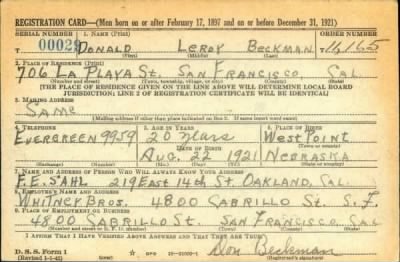 REGISTRATION CARD—(Men born on or after February 17, 1897 and on or before December 31, 1921)
SERIAL NUMBER 1. NAME (Print) ORDER NUMBER
T 00028 DONALD LEROY BECKMAN T 11,165
(First) (Middle) (Last)
2. PLACE OF RESIDENCE (Print)
706 LA PLAYA ST. SAN FRANCISCO, CAL
(Number and street) (Town, township, village, or city) (County) (State)
[THE PLACE OF RESIDENCE GIVEN ON THE LINE ABOVE WILL DETERMINE LOCAL BOARD
JURISDICTION; LINE 2 OF REGISTRATION CERTIFICATE WILL BE IDENTICAL]
3. MAILING ADDRESS
SAME
[Mailing address if other than place indicated on line 2. If same insert word same]
4. TELEPHONE 5. AGE IN YEARS 6. PLACE OF BIRTH
EVERGREEN 9959 20 WEST POINT
DATE OF BIRTH (Town or county)
AUG. 22 1921 NEBRASKA
(Exchange) (Number) (Mo.) (Day) (Yr.) (State or country)
7. NAME AND ADDRESS OF PERSON WHO WILL ALWAYS KNOW YOUR ADDRESS
F.E. SAHL 219 EAST 14TH ST. OAKLAND, CAL.
8. EMPLOYER'S NAME AND ADDRESS
WHITNEY BROS. 4800 CABRILLO ST. S.F.
9. PLACE OF EMPLOYMENT OR BUSINESS
4800 CABRILLO ST. SAN FRANCISCO, CAL
(Number and street or R. F. D. number) (Town) (County) (State)
I AFFIRM THAT I HAVE VERIFIED ABOVE ANSWERS AND THAT THEY ARE TRUE.
D. S. S. Form 1 Don Beckman
(Revised 1-1-42) (over) (Registrant's signature)